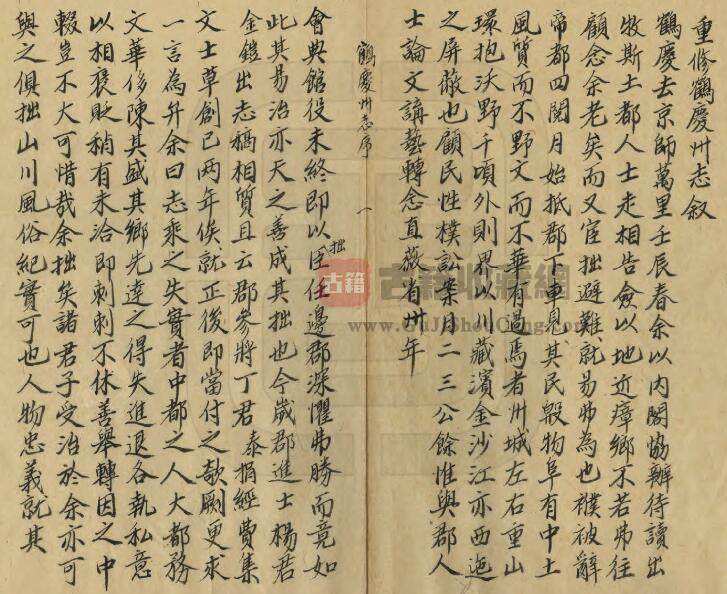 重修鶴慶州志叙
鶴慶去京師萬里壬辰春余以内閣協辦侍讀出
牧斯土都人士走相告僉以地近瘴鄉不若弗往
顧念余老矣而又宦拙避難就易弗為也襆被辭
帝都四閱月始抵郡下車見其民殷物阜有中土
風質而不野文而不華有過焉者卅城左右重山
環抱沃野千頃外則界以川藏濱金沙江亦西迤
之屏蔽也顧民性樸訟案月二三公餘惟與郡人
士論文講藝轉念直薇省卅年
鶴慶州志序
一
會典館役未終即以拙臣任邊郡深懼弗勝而竟如
此其易治亦天之善成其拙也今歲郡進士楊君
金鎧出志稿相質且云郡參將丁君泰捐經費集
文士草創已两年俟就正後即當付之欹劂更求
一言為弁余曰志乘之失實者中都之人大都務
文華侈陳其盛其鄉先達之得失進退各執私意
以相褒貶稍有未洽即刺刺不休善舉轉因之中
輟豈不大可惜哉余拙矣諸君子受治於余亦可
與之俱拙山川風俗紀實可也人物忠義就其
古籍
古籍收藏網
www.GuJiShouCang.com